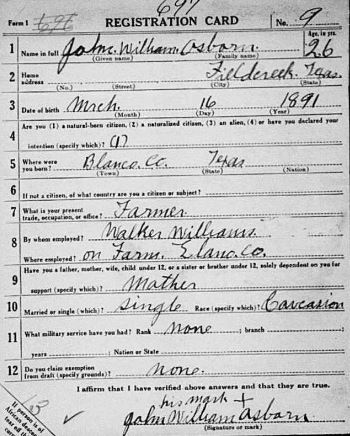 697
Form 1 REGISTRATION CARD No. 9
1 Name in full John William Osborn Age, in yrs. 26
(Given name) (Family name)
2 Home address Fieldcreek, Texas
(No.) (Street) (City) (State)
3 Date of birth Mrch. 16 1891
(Month) (Day) (Year)
4 Are you (1) a natural-born citizen, (2) a naturalized citizen, (3) an alien, (4) or have you declared your
intention (specify which)? (1)
5 Where were you born? Blanco Co. Texas
(Town) (State) (Nation)
6 If not a citizen, of what country are you a citizen or subject?
7 What is your present trade, occupation, or office? Farmer
8 By whom employed? Walker Williams
Where employed? on Farm. Llano, Co.
9 Have you a father, mother, wife, child under 12, or a sister or brother under 12, solely dependent on you for
support (specify which)? Mother
10 Married or single (which)? Single Race (specify which)? Caucasion
11 What military service have you had? Rank none ; branch
years ; Nation or State
12 Do you claim exemption from draft (specify grounds)? none.
I affirm that I have verified above answers and that they are true.
his mark +
John William Osborn
(Signature or mark)
If person is of
African descent
tear off